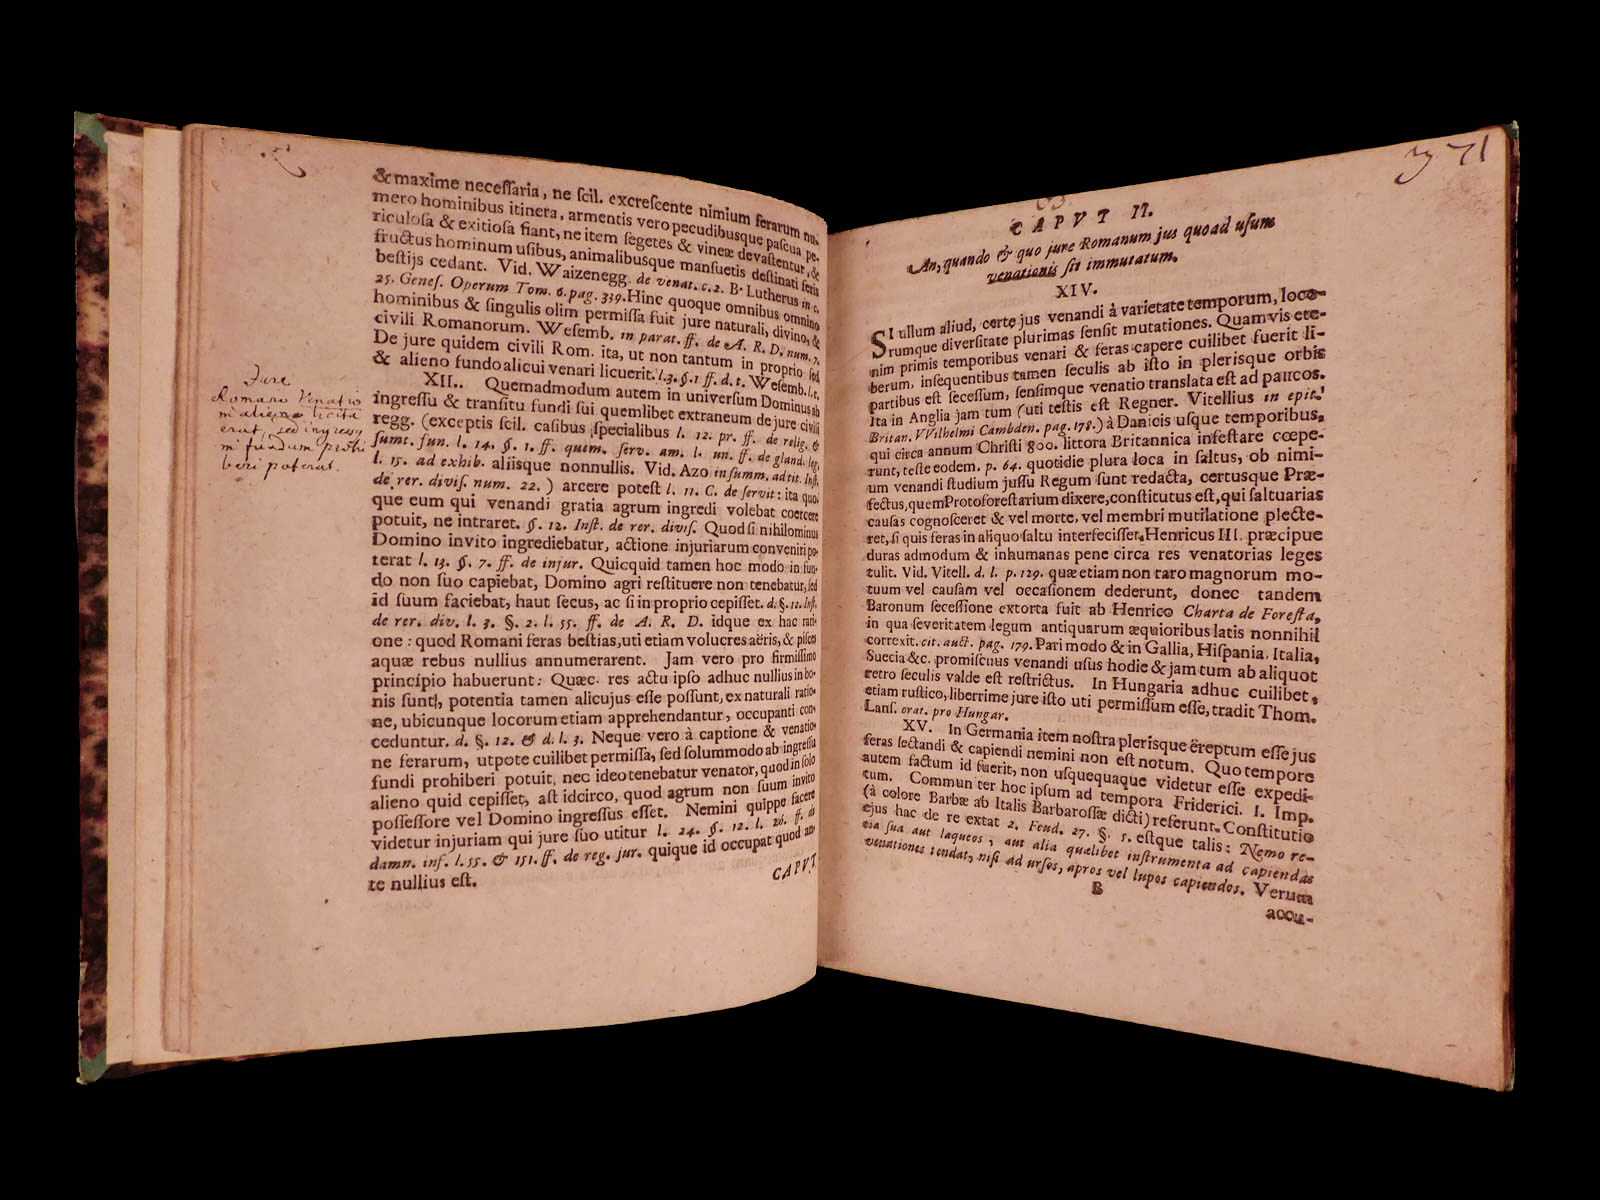 & maxime neceſſaria, ne ſcil. excreſcente nimium ferarum nu-
mero hominibus itinera, armentis vero pecudibusque paſcua pe-
riculoſa & exitioſa fiant, ne item ſegetes & vineæ devaſtentur, &
fructus hominum uſibus, animalibusque manſuetis deſtinati feris
beſtijs cedant. Vid. Waizenegg. de venat. c. 2. B. Lutherus in c.
25. Geneſ. Operum Tom. 6. pag. 339. Hinc quoque omnibus omnino
hominibus & ſingulis olim permiſſa fuit jure naturali, divino, &
civili Romanorum. Weſemb. in parat. ff. de A. R. D. num. 7.
De jure quidem civili Rom. ita, ut non tantum in proprio ſed
& alieno fundo alicui venari licuerit. l. 3. §. 1 ff. d. t. Weſemb. l. c.
XII.. Quemadmodum autem in univerſum Dominus ab
ingreſſu & tranſitu fundi ſui quemlibet extraneum de jure civili
regg. (exceptis ſcil. caſibus ſpecialibus l. 12. pr. ff. de relig. &
ſumt. fun. l. 14. §. 1. ff. quem. ſerv. am. l. un. ff. de gland. leg.
l. 15. ad exhib. aliisque nonnullis. Vid. Azo in ſumm. ad tit. Inſt.
de rer. diviſ. num. 22.) arcere poteſt l. 11. C. de ſervit: ita quo-
que eum qui venandi gratia agrum ingredi volebat coercere
potuit, ne intraret. §. 12. Inſt. de rer. diviſ. Quod ſi nihilominus
Domino invito ingrediebatur, actione injuriarum conveniri po-
terat l. 13. §. 7. ff. de injur. Quicquid tamen hoc modo in fun-
do non ſuo capiebat, Domino agri reſtituere non tenebatur, ſed
id ſuum faciebat, haut ſecus, ac ſi in proprio cepiſſet. d. §. 12. Inſt.
de rer. div. l. 3. §. 2. l. 55. ff. de A. R. D. idque ex hac rati-
one: quod Romani feras beſtias, uti etiam volucres aëris, & piſces
aquæ rebus nullius annumerarent. Jam vero pro firmiſſimo
principio habuerunt: Quæc. res actu ipſo adhuc nullius in bo-
nis ſunt, potentia tamen alicujus eſſe poſſunt, ex naturali ratio-
ne, ubicunque locorum etiam apprehendantur, occupanti con-
ceduntur. d. §. 12. & d. l. 3. Neque vero à captione & venatio-
ne ferarum, utpote cuilibet permiſſa, ſed ſolummodo ab ingreſſu
fundi prohiberi potuit, nec ideo tenebatur venator, quod in ſolo
alieno quid cepiſſet, aſt idcirco, quod agrum non ſuum invito
poſſeſſore vel Domino ingreſſus eſſet. Nemini quippe facere
videtur injuriam qui jure ſuo utitur l. 24. §. 12. l. 26. ff. de
damn. inf. l. 55. & 151. ff. de reg. jur. quique id occupat quod an-
te nullius eſt.
CAPVT
Jure
Romano Venatio
in alieno licita
erat, sed ingressu
in fundum prohi
beri poterat.
71
CAPVT II.
An, quando & quo jure Romanum jus quoad uſum
venationis ſit immutatum.
XIV.
SI ullum aliud, certe jus venandi à varietate temporum, loco-
rumque diverſitate plurimas ſenſit mutationes. Quamvis ete-
nim primis temporibus venari & feras capere cuilibet fuerit li-
berum, inſequentibus tamen ſeculis ab iſto in plerisque orbis
partibus eſt ſeceſſum, ſenſimque venatio translata eſt ad paucos.
Ita in Anglia jam tum (uti teſtis eſt Regner. Vitellius in epit.
Britan. VVilhelmi Cambden. pag. 178.) à Danicis uſque temporibus,
qui circa annum Chriſti 800. littora Britannica infeſtare cœpe-
runt, teſte eodem. p. 64. quotidie plura loca in ſaltus, ob nimi-
um venandi ſtudium juſſu Regum ſunt redacta, certusque Præ-
fectus, quem Protoforeſtarium dixere, conſtitutus eſt, qui ſaltuarias
cauſas cognoſceret & vel morte, vel membri mutilatione plecte-
ret, ſi quis feras in aliquo ſaltu interfeciſſet. Henricus III. præcipue
duras admodum & inhumanas pene circa res venatorias leges
tulit. Vid. Vitell. d. l. p. 129. quæ etiam non raro magnorum mo-
tuum vel cauſam vel occaſionem dederunt, donec tandem
Baronum ſeceſſione extorta fuit ab Henrico Charta de Foreſta,
in qua ſeveritatem legum antiquarum æquioribus latis nonnihil
correxit. cit. auct. pag. 179. Pari modo & in Gallia, Hiſpania, Italia,
Suecia &c. promiſcuus venandi uſus hodie & jam tum ab aliquot
retro ſeculis valde eſt reſtrictus. In Hungaria adhuc cuilibet,
etiam ruſtico, liberrime jure iſto uti permiſſum eſſe, tradit Thom.
Lanſ. orat. pro Hungar.
XV. In Germania item noſtra plerisque ëreptum eſſe jus
feras ſectandi & capiendi nemini non eſt notum. Quo tempore
autem factum id fuerit, non uſquequaque videtur eſſe expedi-
tum. Commun ter hoc ipſum ad tempora Friderici. I. Imp.
(à colore Barbæ ab Italis Barbaroſſæ dicti) referunt. Conſtitutio
ejus hac de re extat 2. Feud. 27. §. 5. eſtque talis: Nemo re-
tia ſua aut laqueos, aut alia quælibet inſtrumenta ad capiendas
venationes tendat, niſi ad urſos, apros vel lupos capiendos. Verum
B
accu-